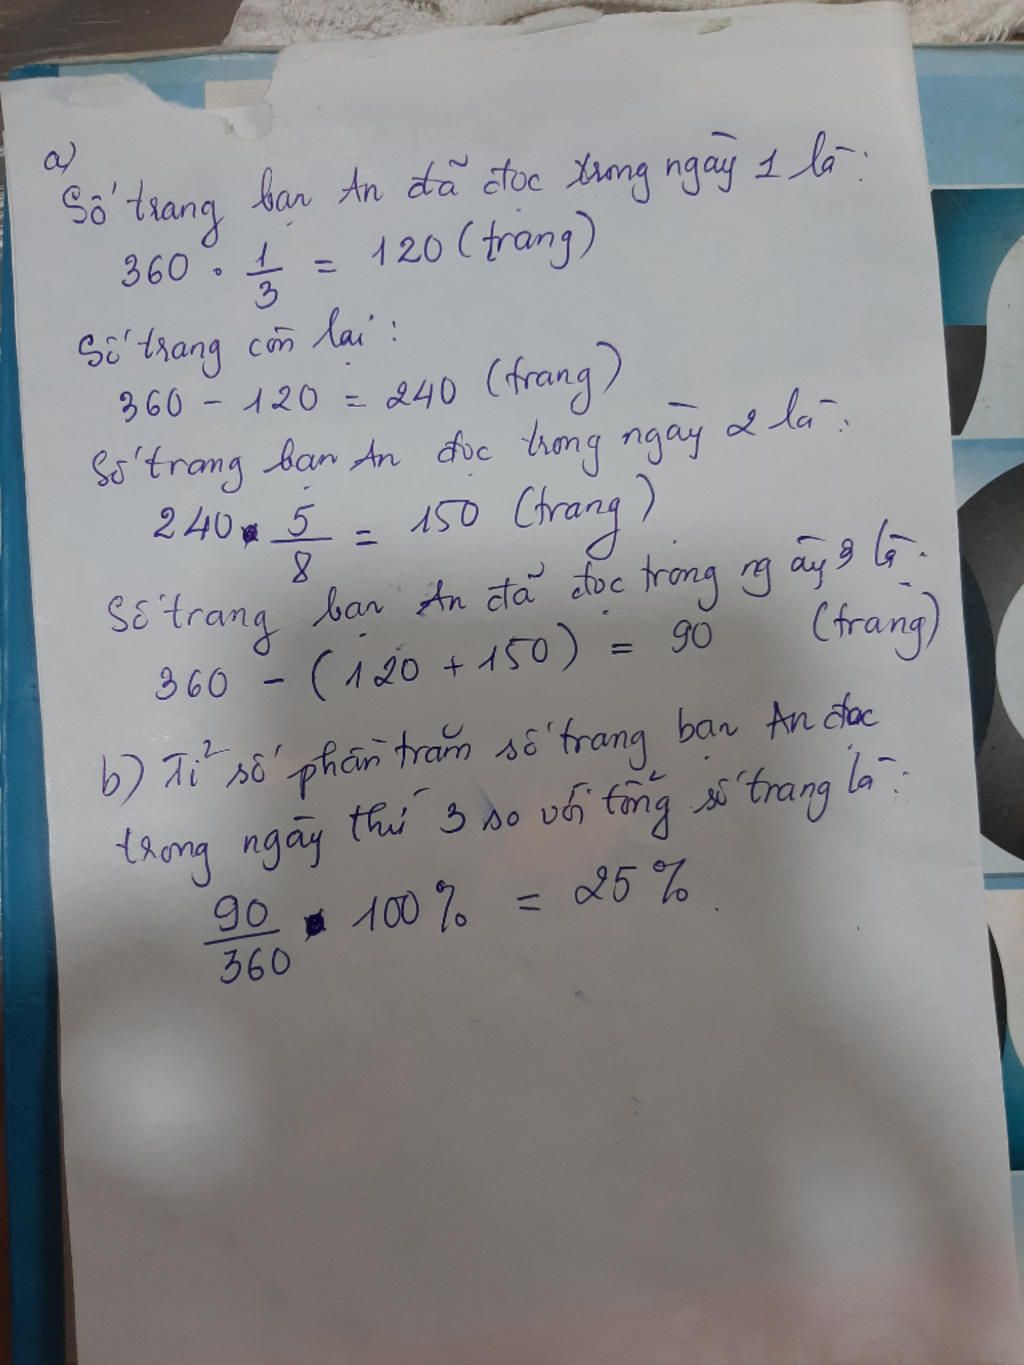 a)
Số trang bạn An đã đọc trong ngày 1 là:
360 . 1/3 = 120 (trang)
Số trang còn lại:
360 - 120 = 240 (trang)
Số trang bạn An đọc trong ngày 2 là:
240 . 5/8 = 150 (trang)
Số trang bạn An đã đọc trong ngày 3 là:
360 - (120 + 150) = 90 (trang)
b) Tỉ số phần trăm số trang bạn An đọc
trong ngày thứ 3 so với tổng số trang là:
90/360 . 100% = 25%.